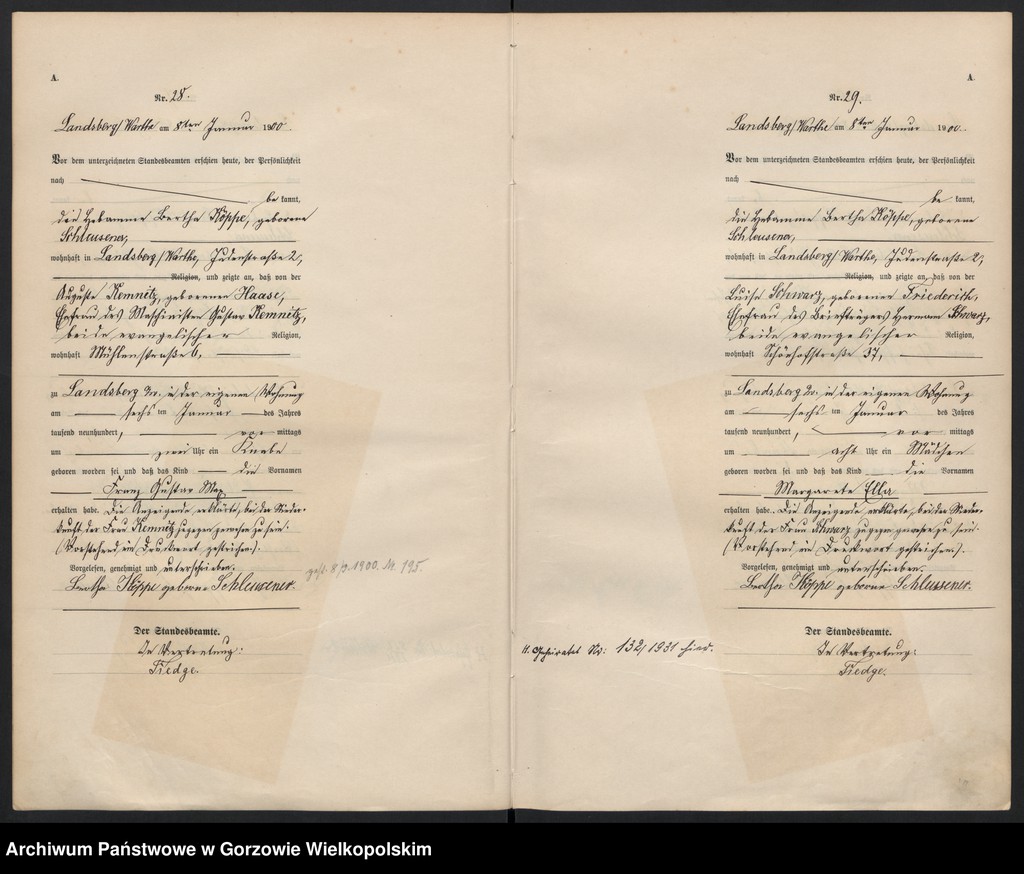 A.
Nr. 28.
Landsberg/Warthe am 8ten Januar 1900.
Vor dem unterzeichneten Standesbeamten erschien heute, der Persönlichkeit
nach
be kannt,
die Hebamme Bertha Köppe, geborene
Schleusener,
wohnhaft in Landsberg/Warthe, Judenstraße 2,
Religion, und zeigte an, daß von der
Auguste Kemnitz, geborenen Haase,
Ehefrau des Maschinisten Gustav Kemnitz,
beide evangelischer Religion,
wohnhaft Mühlenstraße 6,
zu Landsberg a/W. in der eigenen Wohnung
am sechs ten Januar des Jahres
tausend neunhundert, vor mittags
um zwei Uhr ein Knabe
geboren worden sei und daß das Kind die Vornamen
Franz Gustav Max
erhalten habe. Die Anzeigende erklärte, bei der Nieder-
kunft der Frau Kemnitz zugegen gewesen zu sein.
(Vorstehend ein Druckwort gestrichen).
Vorgelesen, genehmigt und unterschrieben.
Bertha Köppe geborne Schleusener.
Der Standesbeamte.
In Vertretung:
Tiedge.
1900. Nr. 195.
A.
Nr. 29.
Landsberg/Warthe am 8ten Januar 1900.
Vor dem unterzeichneten Standesbeamten erschien heute, der Persönlichkeit
nach
be kannt,
die Hebamme Bertha Köppe, geborene
Schleusener,
wohnhaft in Landsberg/Warthe, Judenstraße 2,
Religion, und zeigte an, daß von der
Luise Schwarz, geborenen Friederich,
Ehefrau des Briefträgers Hermann Schwarz,
beide evangelischer Religion,
wohnhaft 37,
zu Landsberg a/W. in der eigenen Wohnung
am sechs ten Januar des Jahres
tausend neunhundert, vor mittags
um acht Uhr ein Mädchen
geboren worden sei und daß das Kind die Vornamen
Margarete Ella
erhalten habe. Die Anzeigende erklärte, bei der Nieder-
kunft der Frau Schwarz zugegen gewesen zu sein.
(Vorstehend ein Druckwort gestrichen).
Vorgelesen, genehmigt und unterschrieben.
Bertha Köppe geborne Schleusener.
Der Standesbeamte.
In Vertretung:
Tiedge.
Geheiratet Nr: 132/1931 hier.
Archiwum Państwowe w Gorzowie Wielkopolskim